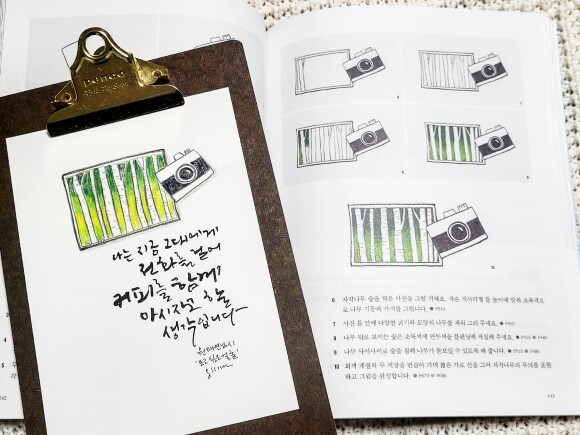 penco
나는 지금 그대에게
전화를 걸어
커피를 함께
마시자고 할
생각입니다
6 자작나무 숲을 찍은 사진을 그릴 거예요. 작은 직사각형 틀
로 나무 기둥과 가지를 그립니다.
7 사진 틀 안에 다양한 굵기와 모양의 나무를 채워 그려 주세요.
8 나무 뒤로 보이는 숲은 초록색에 연두색을 블렌딩해 색칠해 주세요.
9 나무 사이사이로 숲을 칠해 나무가 돋보일 수 있도록 해 줍니다.
10 회색 계열의 두 색상을 번갈아 가며 짧은 가로 선을 그어 자작나무의 무늬를 표현
하고 그림을 완성합니다.
143
142